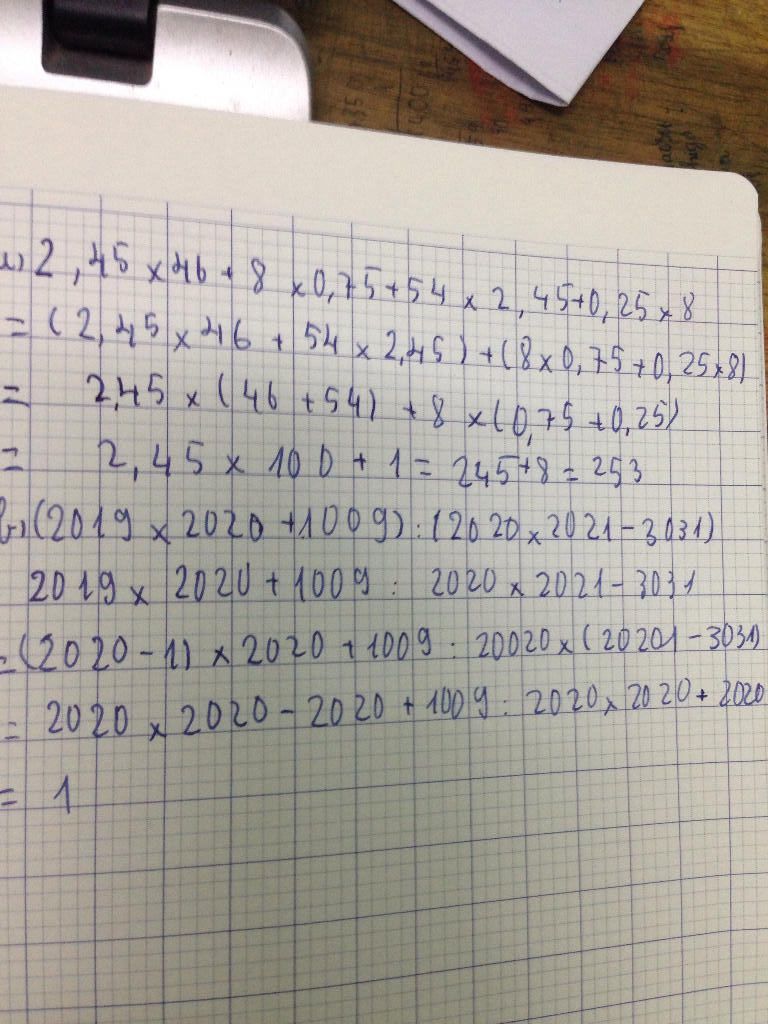 a) 2,45 × 46 + 8 × 0,75 + 54 × 2,45 + 0,25 × 8
= (2,45 × 46 + 54 × 2,45) + (8 × 0,75 + 0,25 × 8)
= 2,45 × (46 + 54) + 8 × (0,75 + 0,25)
= 2,45 × 100 + 1 = 245 + 8 = 253
b) (2019 × 2020 + 1009) : (2020 × 2021 - 3031)
2019 × 2020 + 1009 : 2020 × 2021 - 3031
= (2020 - 1) × 2020 + 1009 : 20020 × (20201 - 3031)
= 2020 × 2020 - 2020 + 1009 : 2020 × 2020 + 2020
= 1